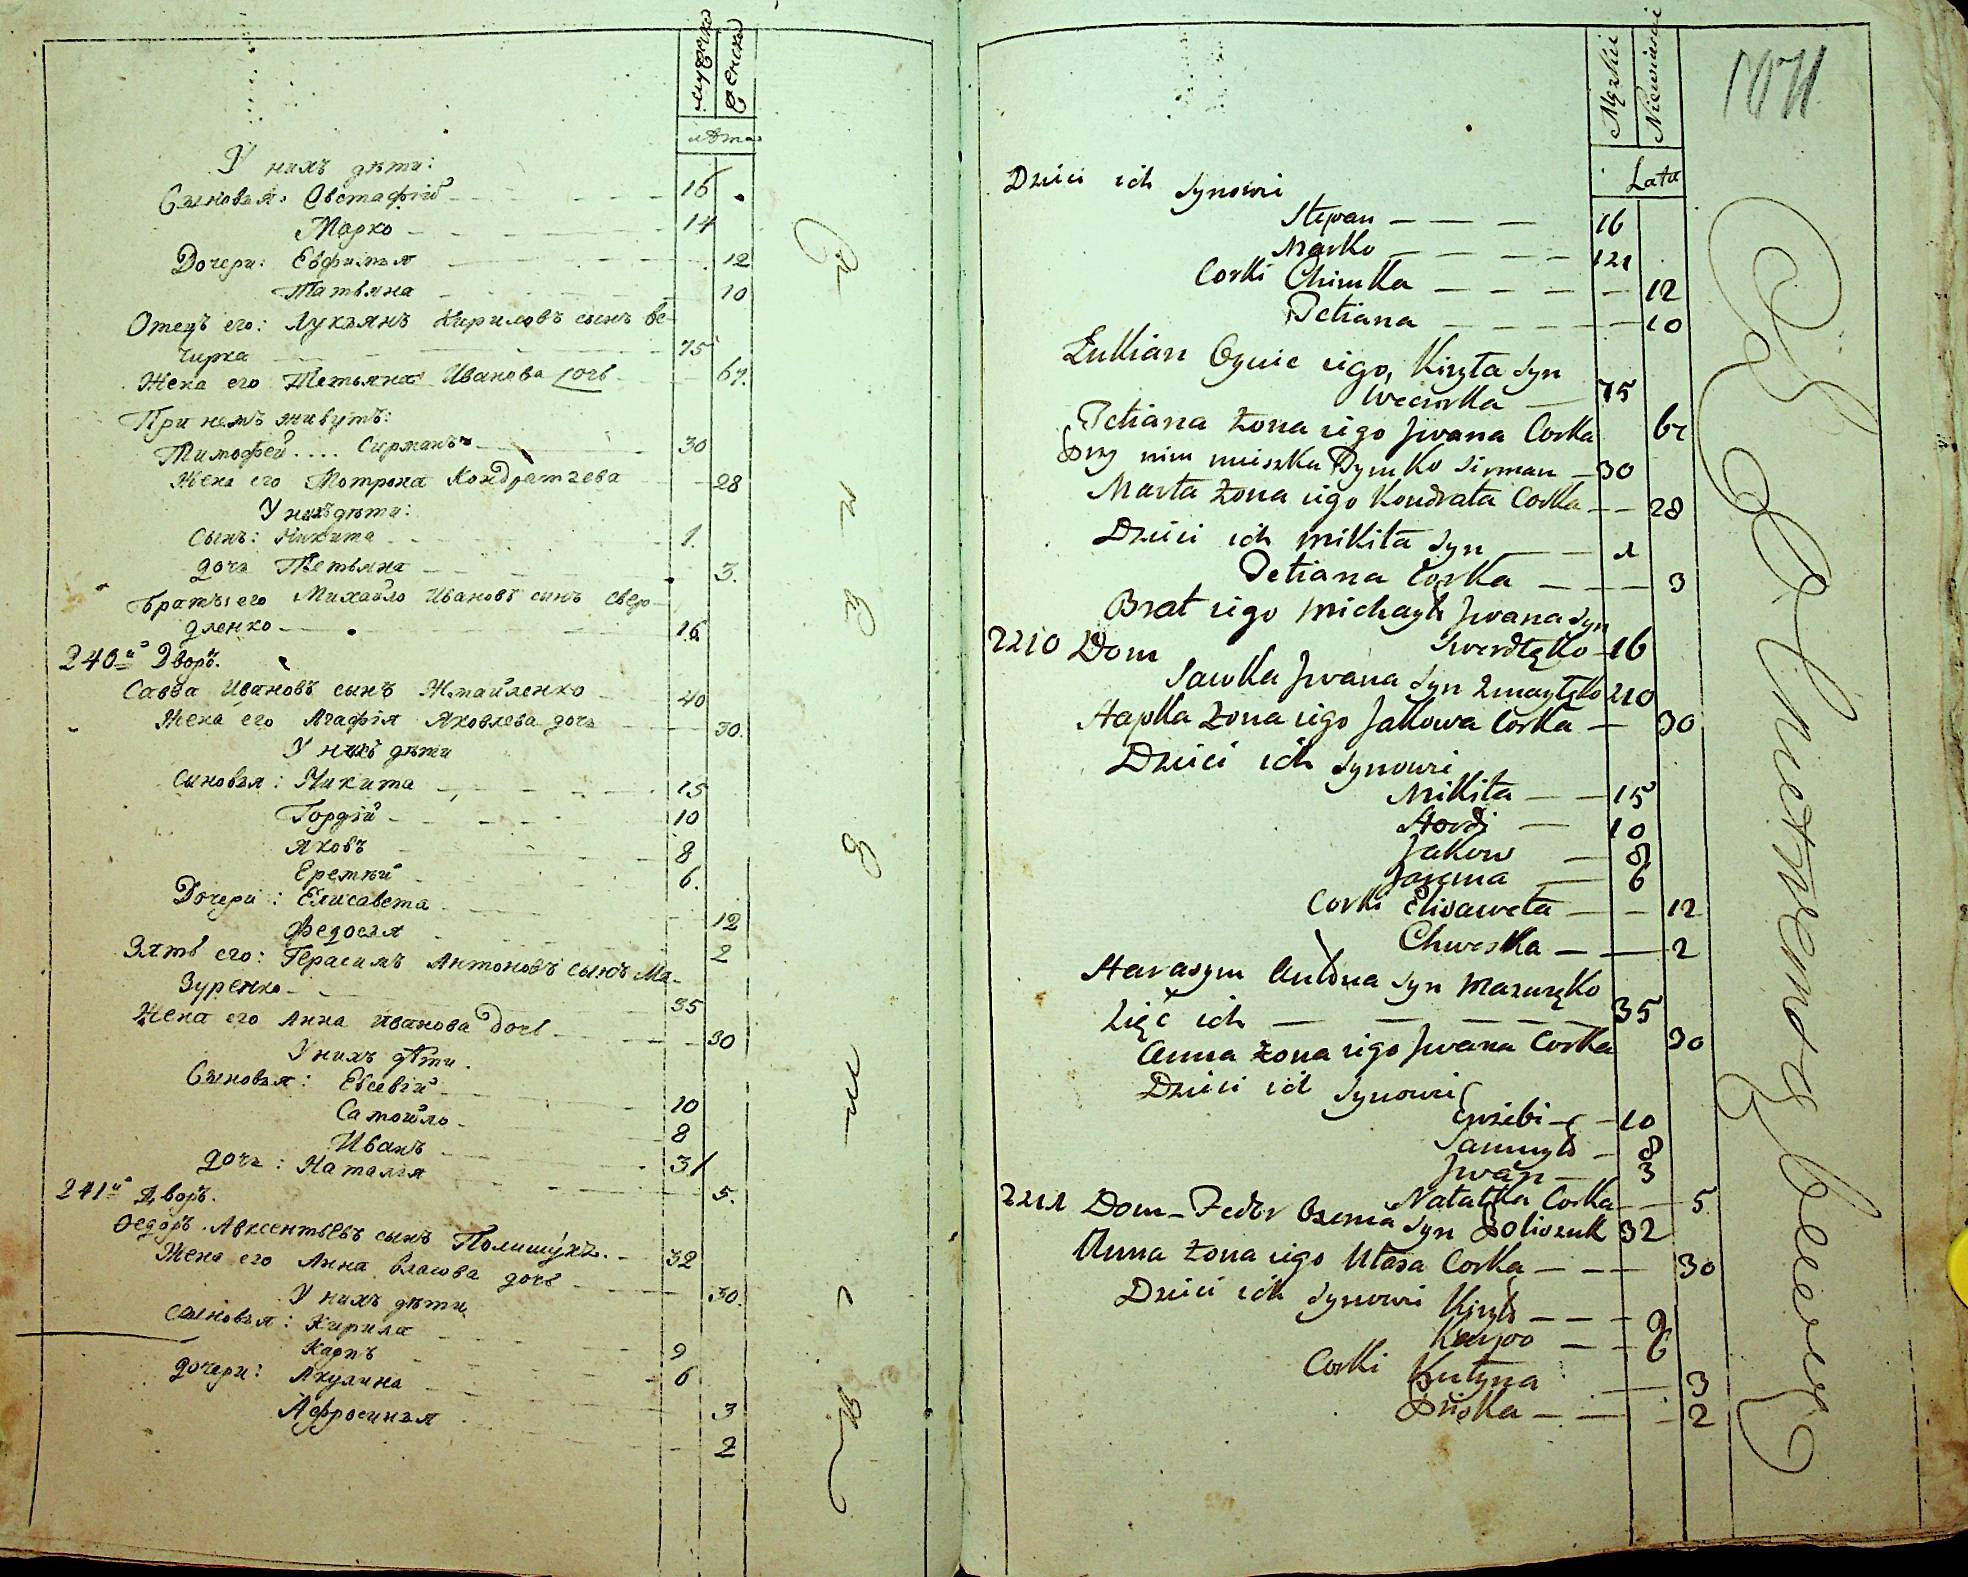 мужеска
женска
лѣта
У нихъ дѣти:
Сыновья: Овстафій 16
Марко 14
Дочери: Евфимья 12
Татьяна 10
Отецъ его: Лукьянъ Кириловъ сынъ Ве-
чирка 75
Жена его Тетьяна Иванова дочь 67.
При немъ живутъ:
Тимофей .... Сирманъ 30
Жена его Мотрона Кондратьева 28
У нихъ дѣти:
Сынъ: Никита 1.
дочь Тетьяна 3.
Братъ его Михайло Ивановъ синъ Свер-
дленко 16
240й Дворъ.
Савва Ивановъ сынъ Жмайленко 40
Жена его Агафія Яковлева дочь 30.
У нихъ дѣти
Сыновья: Никита 15
Гордій 10
Яковъ 8
Еремѣй 6.
Дочери: Елисавета 12
Федосья 2
Зять его: Герасимъ Антоновъ сынъ Ма-
зуренко 35
Жена его Анна Иванова дочь 30
У нихъ дѣти.
Сыновья: Евсевій 10
Самойло 8
Иванъ 3
дочь: Наталья 5.
241й Дворъ.
Федоръ Авксентьевъ сынъ Полишукъ. 32
Жена его Анна Власова дочь 30.
У нихъ дѣти
Сыновья: Кирила 9
Карпъ 6
дочери: Акулина 3
Афросинья 2
Męzkie
Niewieście
Lata
Dzieci ich Synowie
Stepan 16
Marko 14
Corki Chimka 12
Tetiana 10
Łukian Oyciec iego, Kiryła Syn
Weczirka 75
Tetiana żona iego Jwana Corka 67
Przy nim mieszka Tymko Sirman 30
Marta żona iego Kondrata Corka 28
Dzieci ich Mikita Syn 1
Tetiana Corka 3
Brat iego Michayło Jwana Syn
Swerdlęko 16
2210 Dom
Sawka Jwana Syn Zmaylęko 40
Hapka żona iego Jakowa Corka 30
Dzieci ich Synowie
Mikita 15
Hordi 10
Jakow 8
Jarema 6
Corki Elisaweta 12
Chweska 2
Harasym Antona Syn Mazuręko
Zięć ich 35
Anna żona iego Jwana Corka 30
Dzieci ich Synowie
Ewzebi 10
Samuyło 8
Jwan 3
Natałka Corka 5.
2211 Dom Fedor Syn Poliszuk 32
Anna żona iego Ułasa Corka 30
Dzieci ich Synowie Kiryło 9
Karpo 6
Corki Kulyna 3
Priska 2